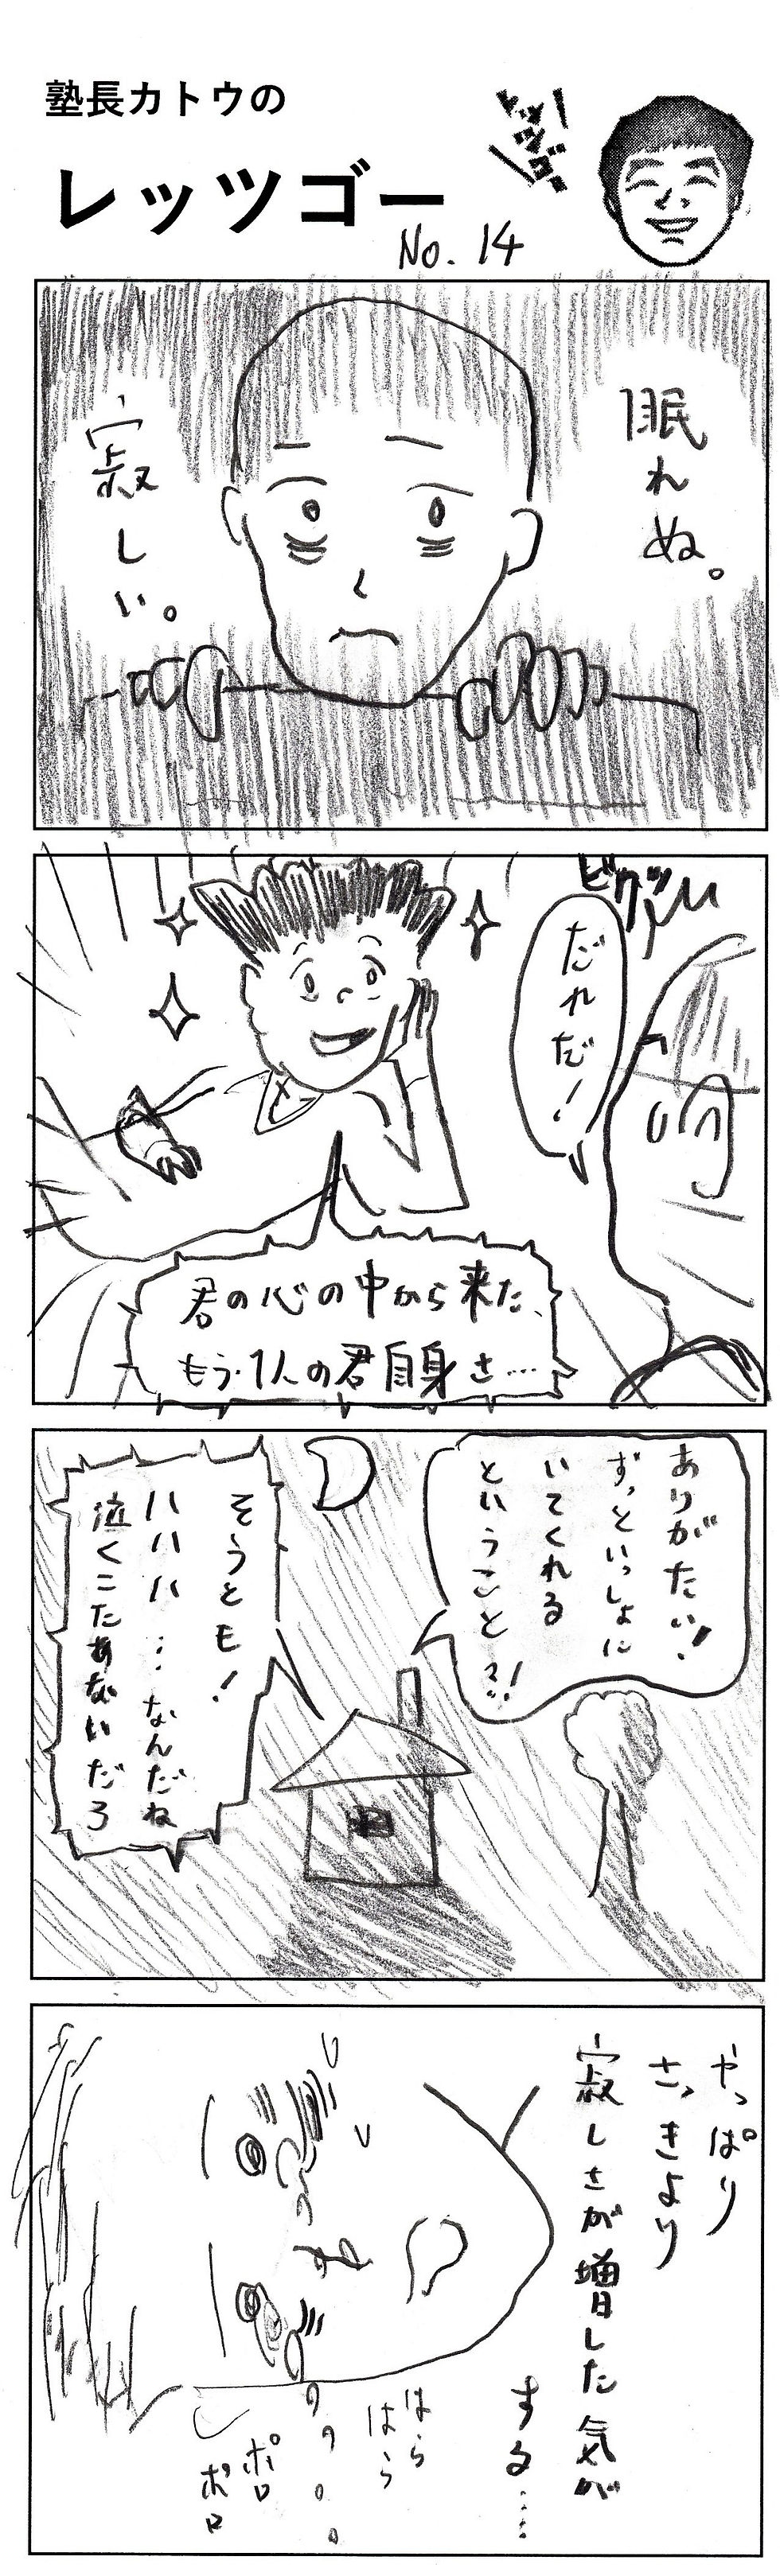 塾長カトウの
レッツゴー
No. 14
眠れぬ。
寂しい。
ビクゥッ
だれだ!
君の心の中から来た、
もう1人の君自身さ…
ありがたい!
ずっといっしょに
いてくれる
ということ?!
そうとも!
ハハハ…なんだね
泣くこたあないだろ
やっぱり
さっきより
寂しさが増した気が
する……
はら
はら
ポロ
ポロ